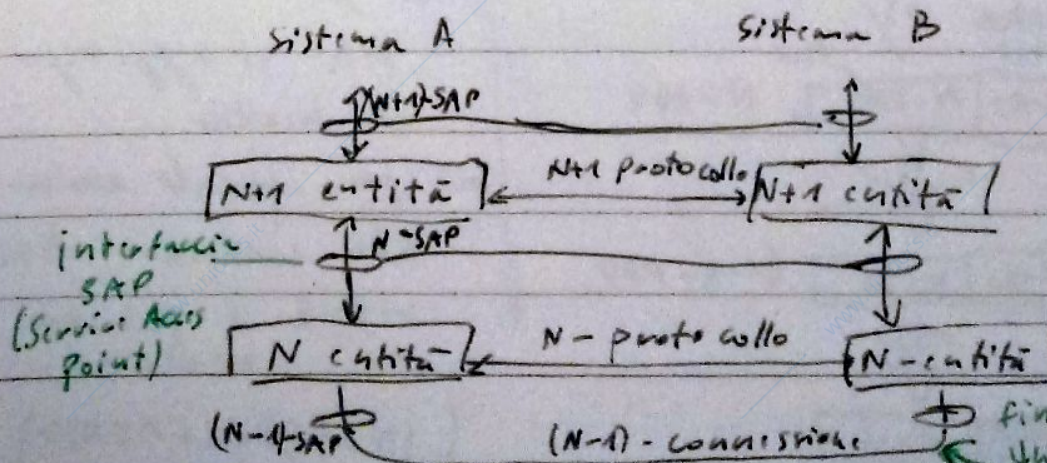 sistema A
sistema B
(N+1)-SAP
N+1 entità
N+1 protocollo
N+1 entità
N-SAP
interfaccia
SAP
(Service Acces
point)
N entità
N - protocollo
N - entità
(N-1)-SAP
(N-1) - connessione